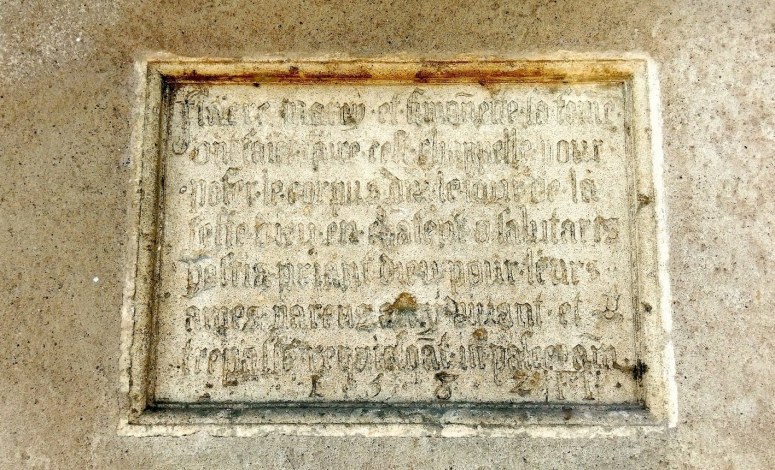 pierre marry et simonette sa fame
ont fait faire cest chappelle pour
poser le corpus dei le jour de la
feste dieu en chantent o salutaris
hostia priant dieu pour leurs
ames parens amy vivant et
trepasse requiescat in pace am
1582